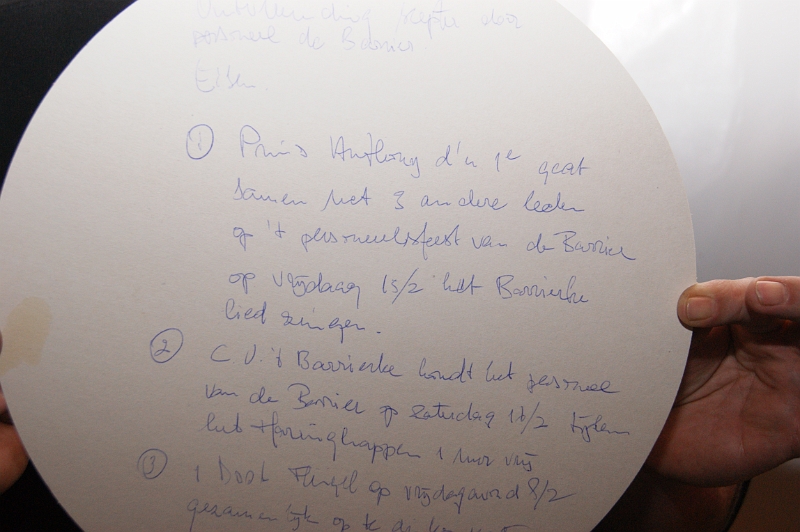 door
personeel de Barrier
Eisen.
① Prins Anthony d'n 1e gaat
samen met 3 andere leden
op 't personeelsfeest van de Barrier
op vrijdag 15/2 het Barrierke
lied zingen.
② C.V. 't Barrierke houdt het personeel
van de Barrier op zaterdag 16/2 tijdens
het Haringhappen 1 uur vrij
③ 1 Doos Flügel op vrijdagavond 8/2
gezamenlijk op te drinken